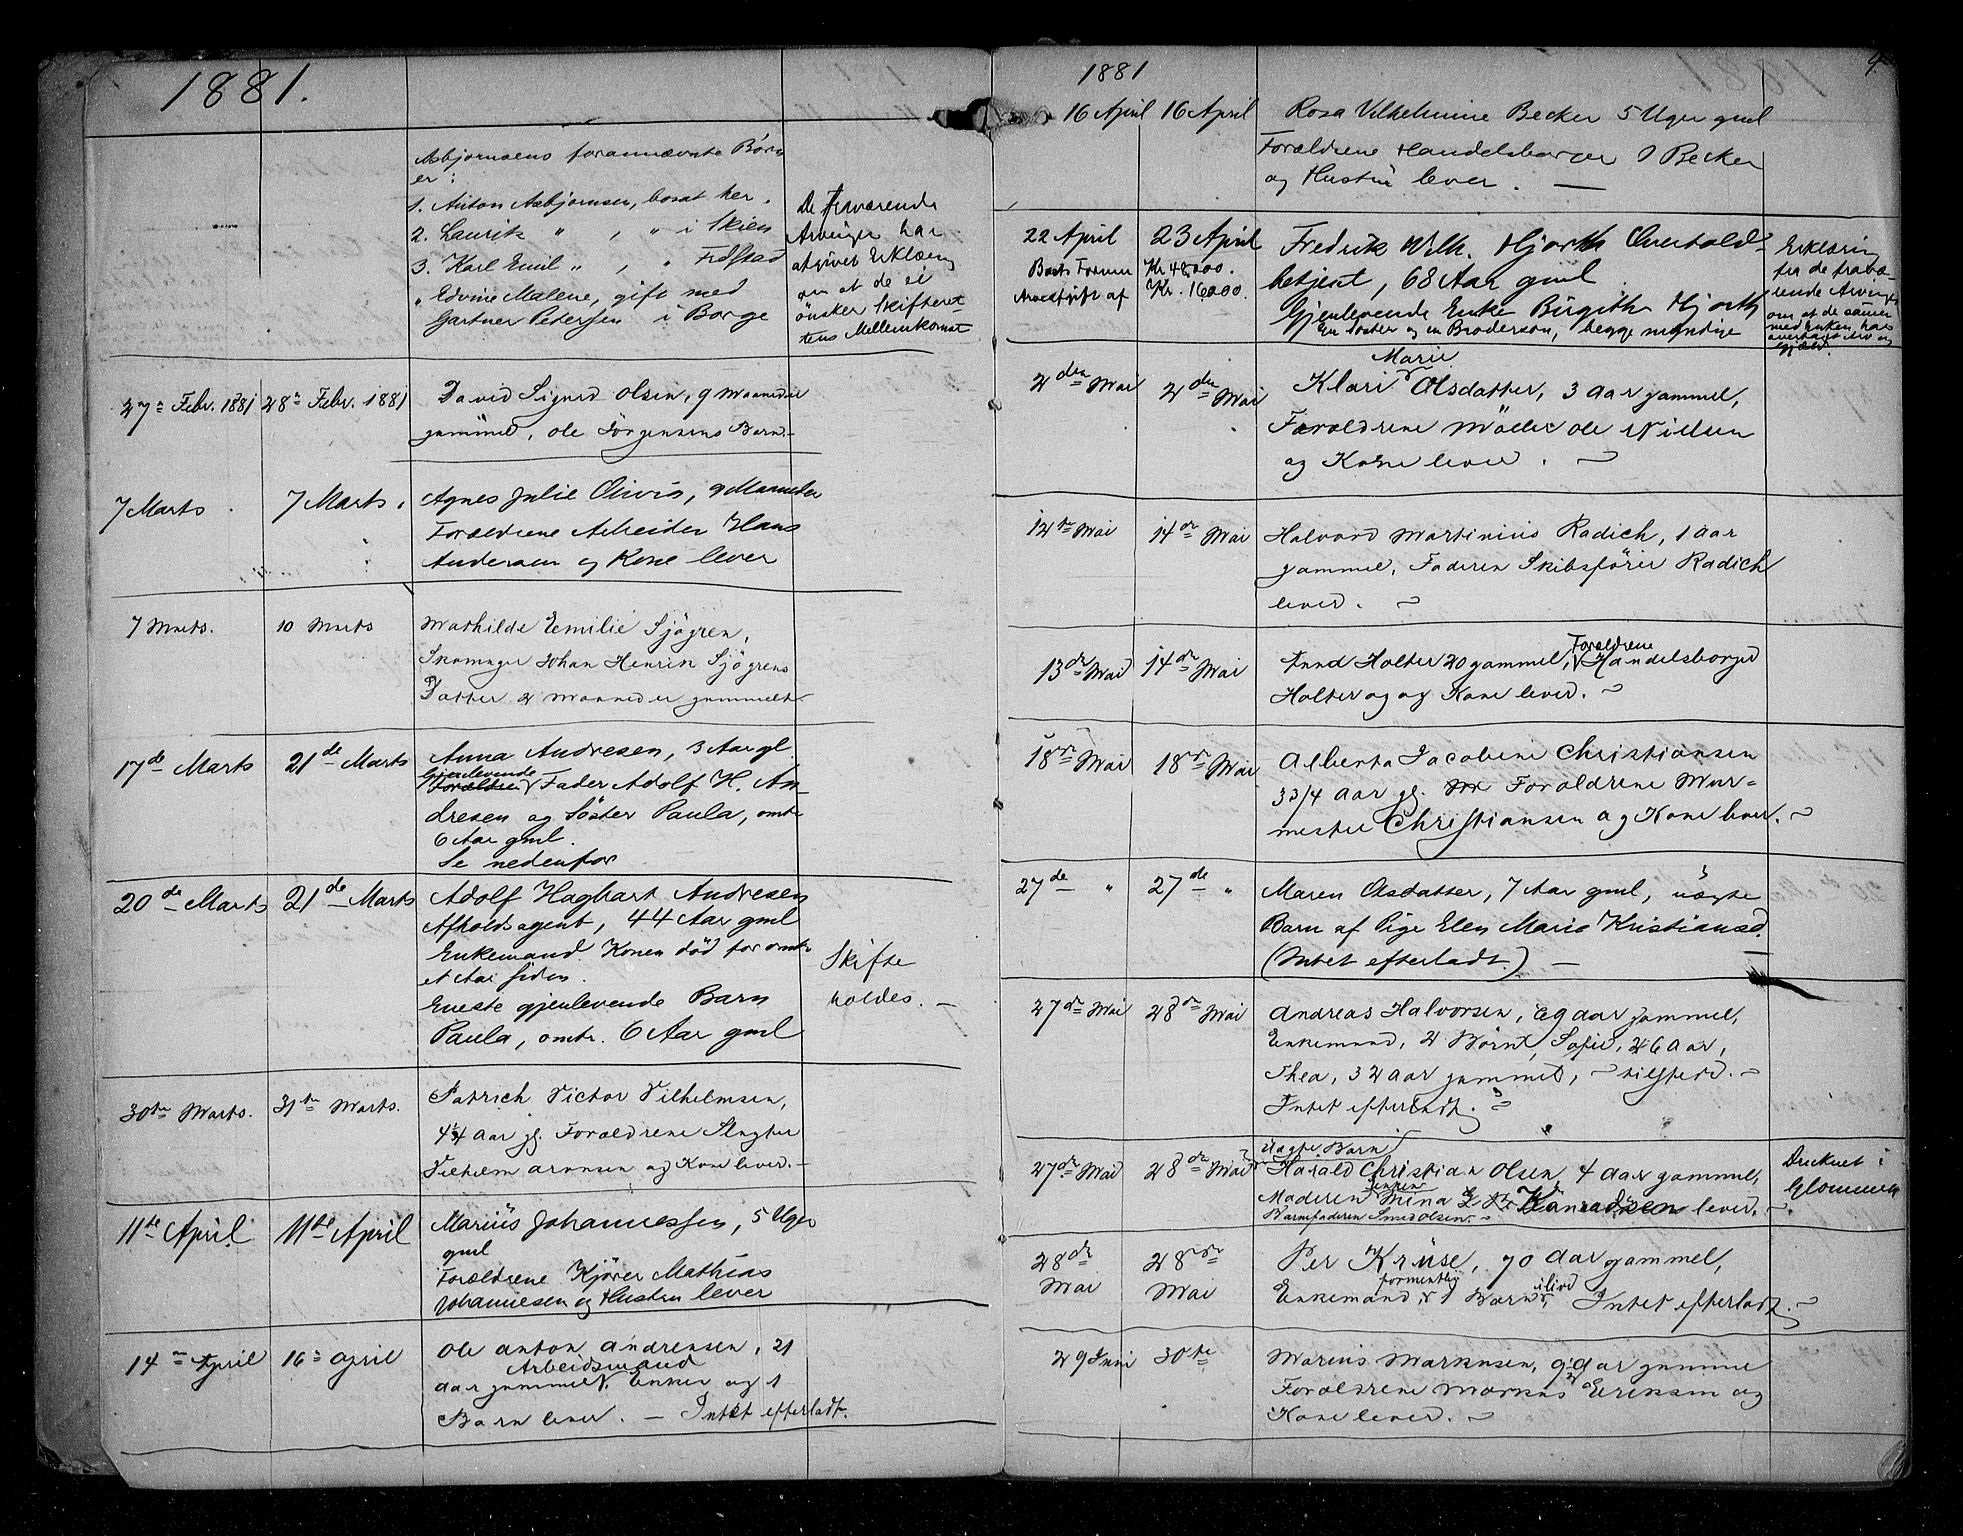 1881.
Asbjørnsens forannævnte Børn
er:
1. Anton Asbjørnsen, bosat her.
2. Laurits " , " i Skien
3. Karl Emil " , " Fdstad
" Edvine Malene, gift med
Gartner Petersen i Borge
De fraværende
Arvinger har
afgivet Erklæring
om at de ei
ønsker Skifteret-
tens Mellemkomst
27de Febr. 1881 28de Febr. 1881 David Sigurd Olsen, 9 Maaneder
gammel, Ole Jörgensens Barn.
7 Marts. 7 Marts. Agnes Julie Olivia, 9 Maaneder
Forældrene Arbeider Hans
Andersen og Kone lever
7 Marts. 10 Marts Mathilde Emilie Sjögren,
Skomager Johan Henrik Sjögrens
Datter 2 Maaneder gammelt
17de Marts 21de Marts Anna Andresen, 3 Aar gl
Gjenlevende
Forældre Fader Adolf H. An-
dresen og Söster Paula, omtr
6 Aar gml.
Se nedenfor
20de Marts 21de Marts Adolf Hagbart Andresen
Afholdsagent, 44 Aar gml
Enkemand. Konen död for omtr
et Aar siden.
Eneste gjenlevende Barn
Paula, omtr. 6 Aar gml
Skifte
holdes. —
30te Marts. 31te Marts. Patrich Victor Vilhelmsen,
Aar gl. Forældrene Slagter
Vilhelm Aronsen og Kone lever. —
11te April 11te April Marius Johannessen, 5 Uger
gml
Forældrene Kjører Mathias
Johannesen og Hustru lever
14de April 16de April Ole Anton Andrensen, 21
Arbeidsmand
aar gammel. Enken og 1
Barn lever. — Intet efterladt.
1881
16 April 16 April Rosa Vilhelmine Becker 5 Uger gml
Forældrene Handelsborger O Becker
og Hustru lever. —
22 April 23 April Fredrik Wilh. Hjorth Overtold-
Kr 48,000. betjent, 68 Aar gml
Kr. 16000. Gjenlevende Enke Birgithe Hjorth
En Söster og en Brodersön, begge myndige
Erklæring
fra de fravæ-
rende Arvinger
om at de sammen
med Enken har
overtaget Bo og
Gjæld.
2den Mai 2den Mai Marie
Klari Olsdatter, 3 aar gammel,
Forældrene Möller Ole Nielsen
og Kone lever. —
12te Mai 14de Mai Halvord Martinius Radich, 1 aar
gammel, Faderen Skibsförer Radich
lever. —
13de Mai 14de Mai Forældrene
Anna Holter 20 gammel, Handelsborger
Holter og og Kone lever. —
18de Mai 18de Mai Alberta Jacobine Christiansen
3 3/4 aar gl. Forældrene Mur-
mester Christiansen og Kone lever. —
27de " 27de " Maren Olsdatter, 7 Aar gml, uægte
Barn af Pige Elen Marie Kristiansd.
(Intet efterladt.) —
27de Mai 28de Mai Andreas Halvorsen, 69 aar gammel,
Enkemand, 2 Børn, Sofie, 26 aar,
Thea, 32 aar gammel, — tilstede. —
Intet efterladt. —
27de Mai 28de Mai Uægte Barn
Harald Christian Olsen, 4 aar gammel,
Moderen Mina lever. —
Barnefaderen Smed Olsen. —
Druknet i
Glommen
28de
Mai
28de
Mai
Per Krüse, 70 aar gammel,
formentlig ilive
Enkemand, 1 Barn, Intet efterladt. —
29 Juni 30te Marius Markusen, 9 aar gammel
Forældrene Markus Eriksen og
Kone lever. —